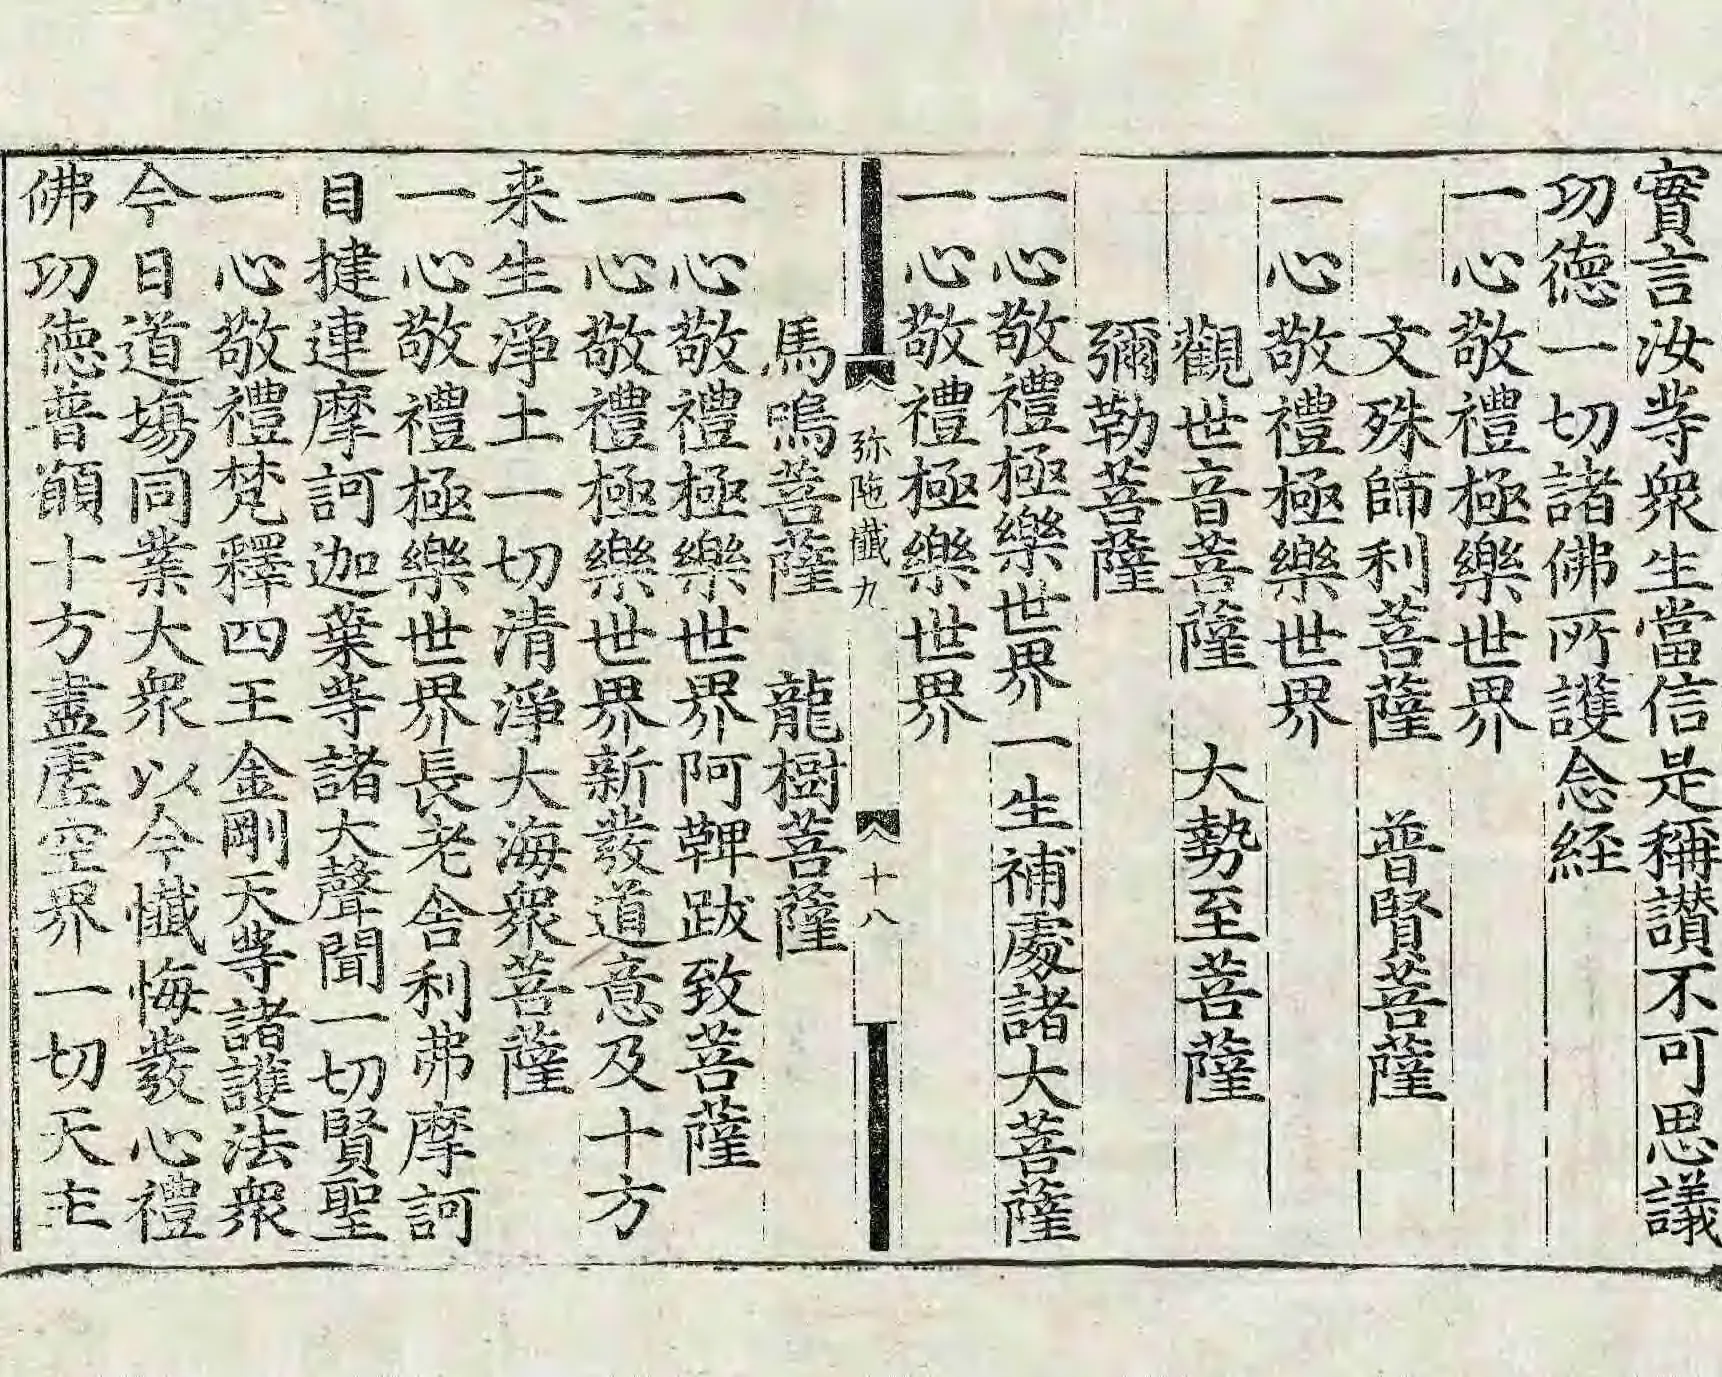 實言汝等衆生當信是稱讃不可思議
功徳一切諸佛所護念経
一心敬禮極樂世界
文殊師利菩薩　普賢菩薩
一心敬禮極樂世界
觀世音菩薩　大勢至菩薩
彌勒菩薩
一心敬禮極樂世界一生補處諸大菩薩
一心敬禮極樂世界
弥陁懺九　十八
馬鳴菩薩　龍樹菩薩
一心敬禮極樂世界阿鞞跋致菩薩
一心敬禮極樂世界新發道意及十方
来生淨土一切清淨大海衆菩薩
一心敬禮極樂世界長老舎利弗摩訶
目揵連摩訶迦葉等諸大聲聞一切賢聖
一心敬禮梵釋四王金剛天等諸護法衆
今日道場同業大衆以今懺悔發心禮
佛功徳普願十方盡虛空界一切天主